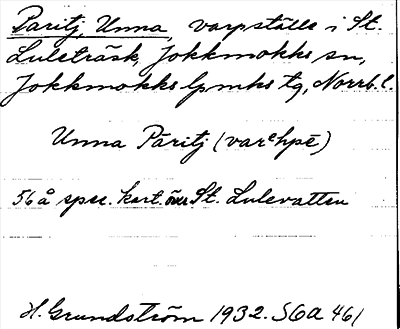 Paritj, Unna, varpställe i St.
Luleträsk, Jokkmokks sn,
Jokkmokks lpmks tg, Norrb. l.
Unna Päritj (varᵉhpē)
56 å spec. kart. över St. Lulevatten
H. Grundström 1932. SGA 461